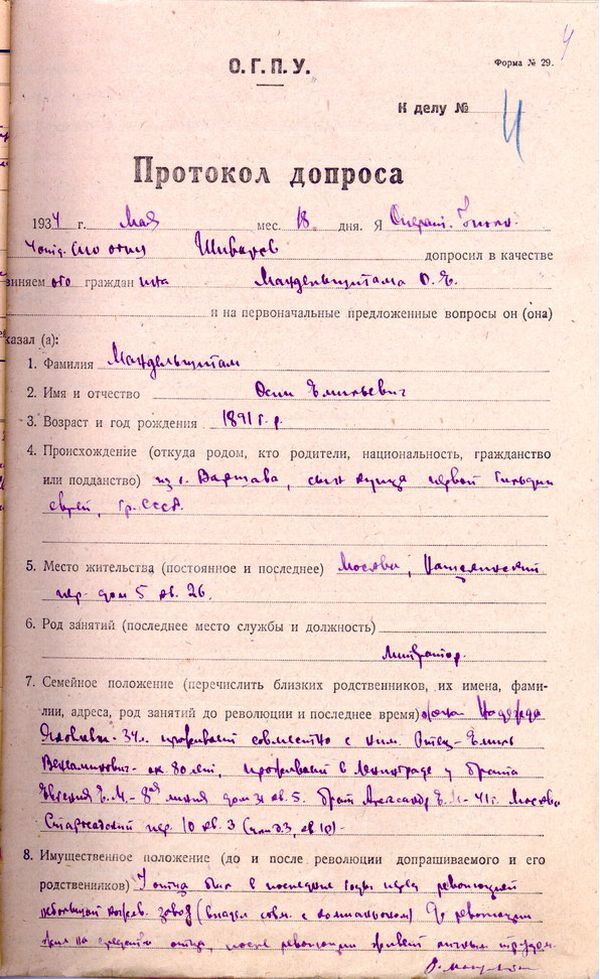 О.Г.П.У.
Форма № 29.
4
К делу № 4
Протокол допроса
1934 г. Мая мес. 18 дня. Я Операт. Упол.
4 отд. СПО ОГПУ Шиваров допросил в качестве
виняемого гражданина Мандельштама О. Э.
и на первоначальные предложенные вопросы он (она)
казал (а):
1. Фамилия Мандельштам
2. Имя и отчество Осип Эмильевич
3. Возраст и год рождения 1891 г. р.
4. Происхождение (откуда родом, кто родители, национальность, гражданство
или подданство) из г. Варшава, сын купца первой гильдии
еврей, гр. СССР.
5. Место жительства (постоянное и последнее) Москва, Нащекинский
пер. дом 5 кв. 26.
6. Род занятий (последнее место службы и должность)
литератор.
7. Семейное положение (перечислить близких родственников, их имена, фами-
лии, адреса, род занятий до революции и последнее время) жена Надежда
Яковлевна - 34 л. проживает совместно с ним. Отец - Эмиль
Вениаминович - ок. 80 лет, проживает в Ленинграде у брата
Евгения Э. М. - 8ая линия дом 31 кв. 5. брат Александр Э. - 41 г. Москва
Старосадский пер. 10 кв. 3
8. Имущественное положение (до и после революции допрашиваемого и его
родственников) У отца был в последние годы перед революцией
небольшой кожев. завод (владел совм. с компаньоном) До революции
жил на средства отца, после революции живет личным трудом.